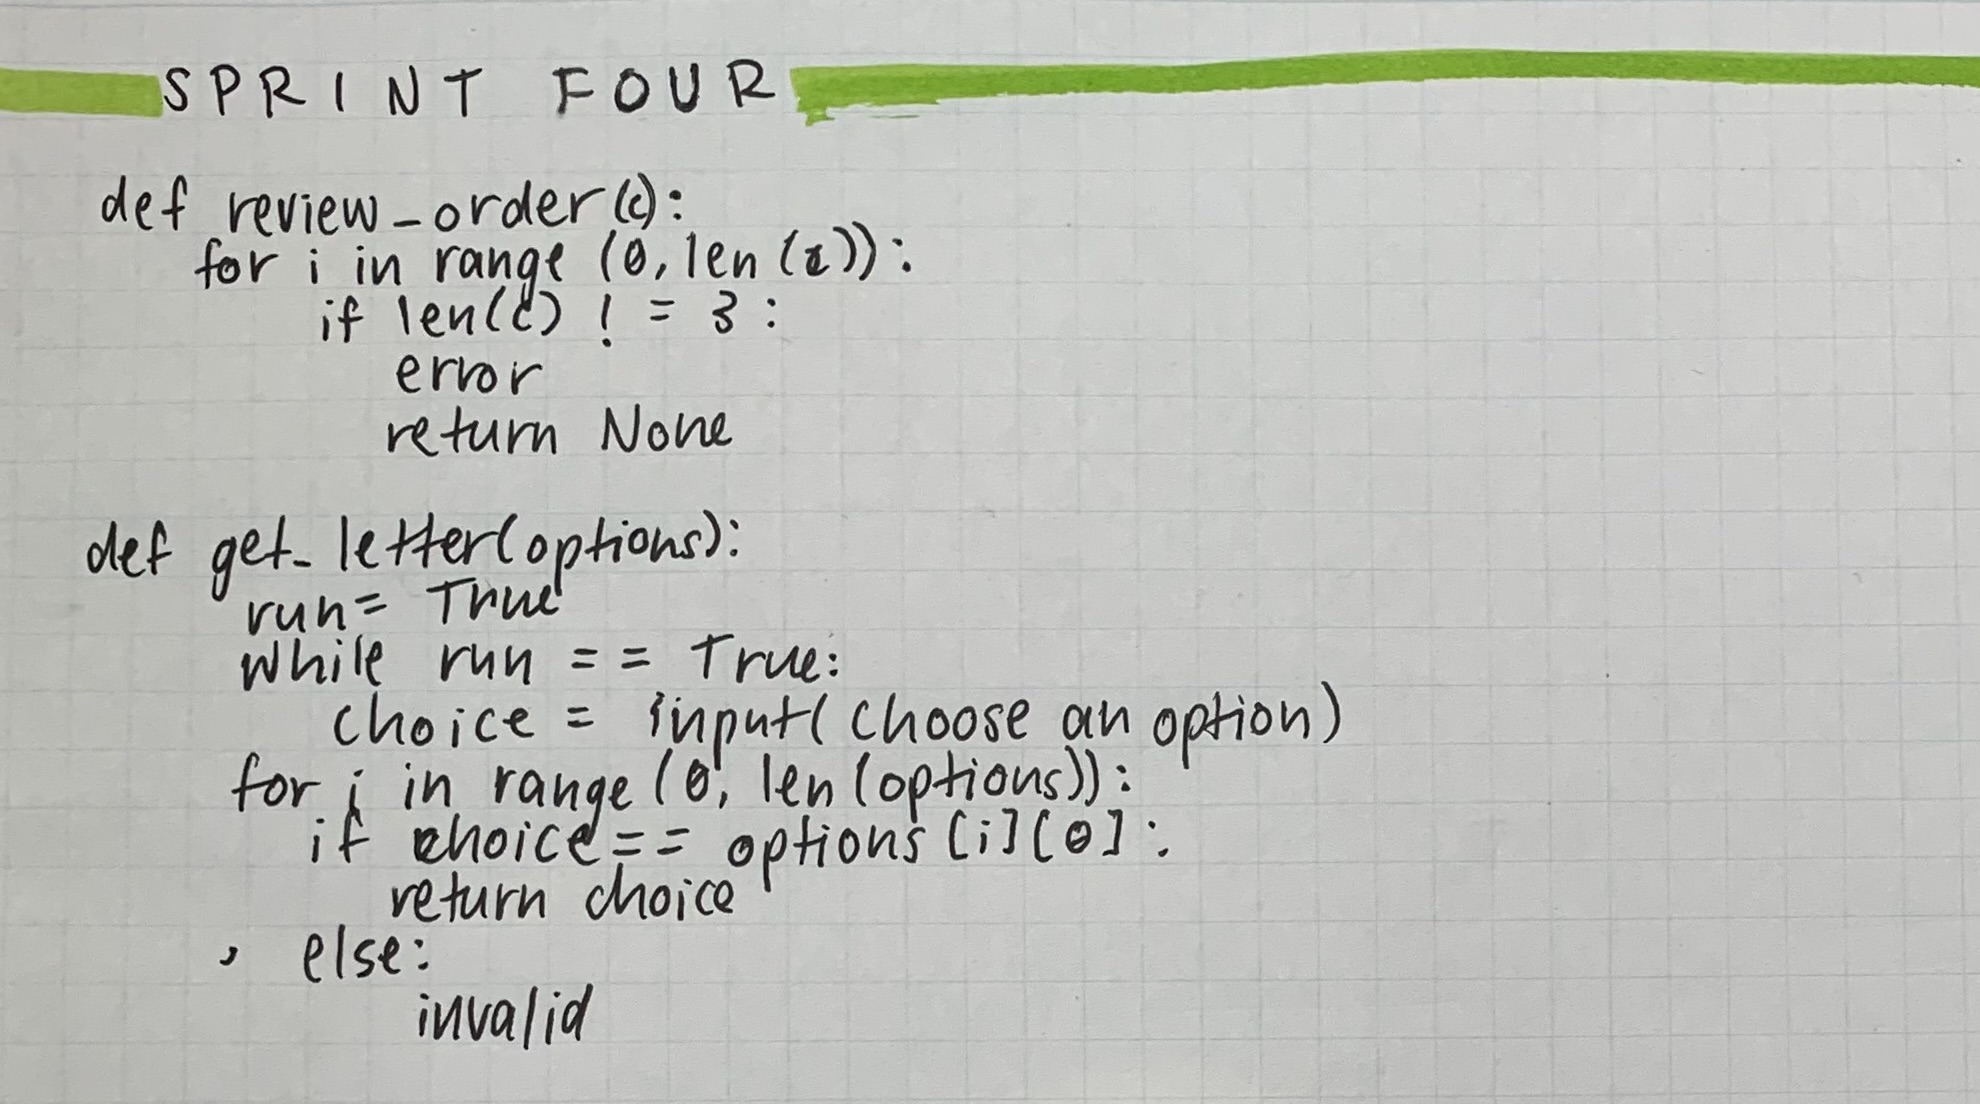 SPRINT FOUR
def review_order(c):
for i in range (0, len(c)):
if len(c) != 3:
error
return None
def get_letter(options):
run= True
while run == True:
choice = input(choose an option)
for i in range (0, len(options)):
if choice == options[i][0]:
return choice
else:
invalid